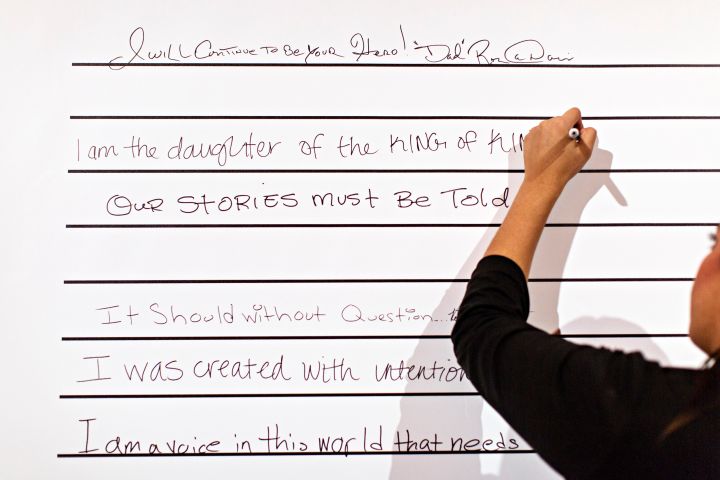 I will Continue To Be Your Hero! "Dad"
I am the daughter of the KING of
OUR STORIES must Be Told
It Should without Question...
I was created with intention
I am a voice in this world that needs